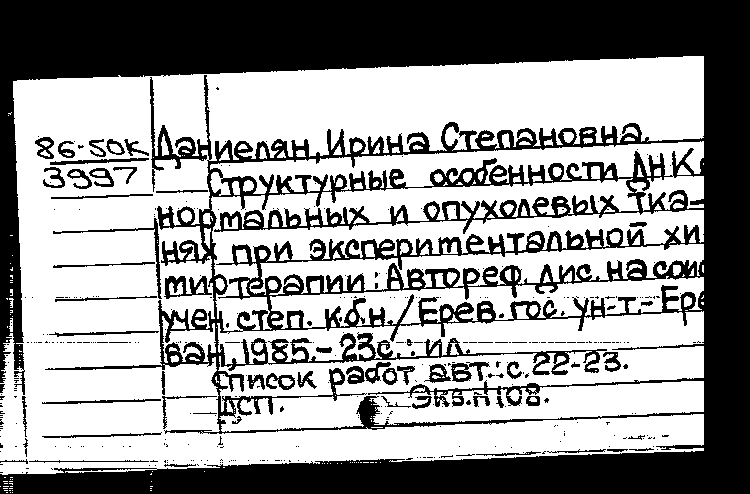 86-50к Даниелян, Ирина Степановна.
3997 Структурные особенности ДНК в
нормальных и опухолевых тка-
нях при экспериментальной хи
миотерапии: Автореф. дис. на соис
учен. степ. к.б.н. / Ерев. гос. ун-т.- Ере
ван, 1985.- 23с.: ил.
Список работ авт.: с. 22-23.
ДСП. Экз.N108.